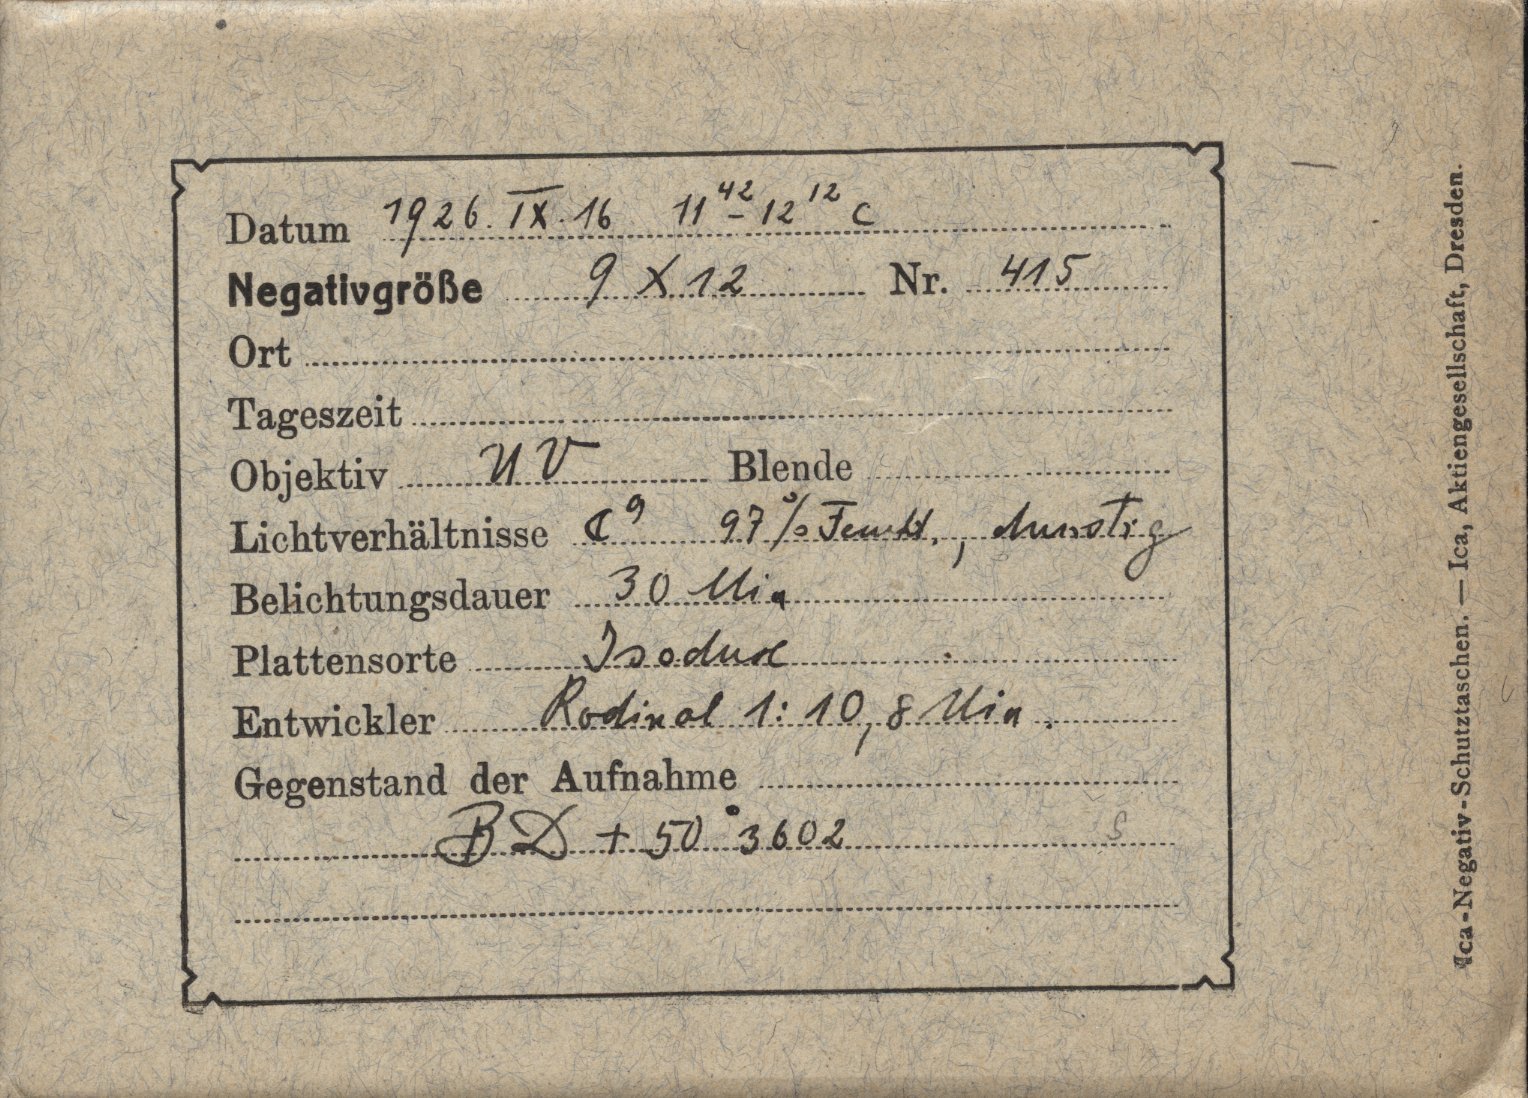 Datum 1926. IX. 16 11⁴² - 12¹² C
Negativgröße 9 X 12 Nr. 415
Ort
Tageszeit
Objektiv UV Blende
Lichtverhältnisse ☾⁹ 97 % Feucht., dunstig
Belichtungsdauer 30 Min
Plattensorte Isodux
Entwickler Rodinal 1:10, 8 Min.
Gegenstand der Aufnahme
BD + 50° 3602
S
Ica-Negativ-Schutztaschen. — Ica, Aktiengesellschaft, Dresden.